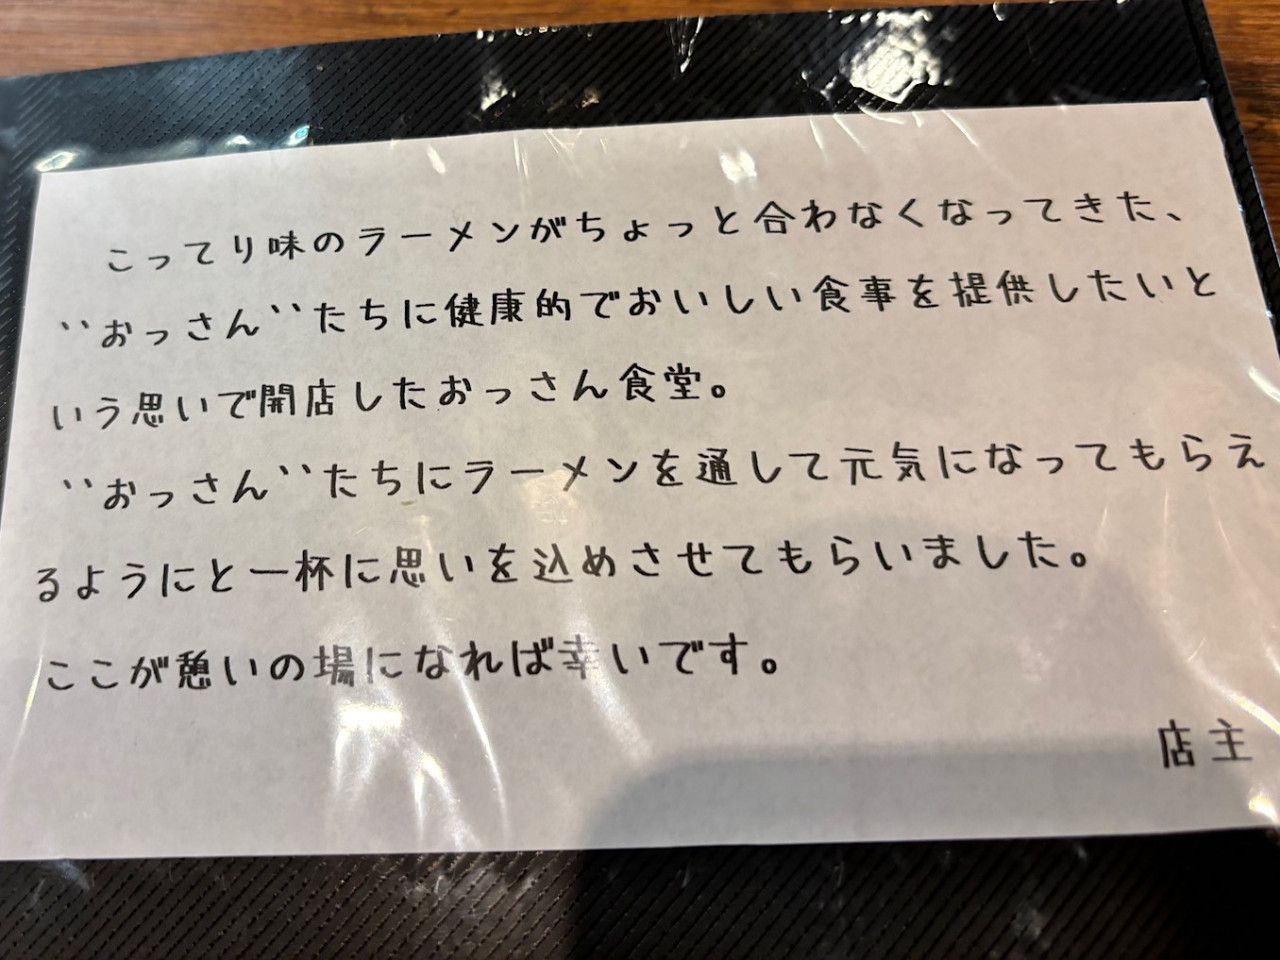 こってり味のラーメンがちょっと合わなくなってきた、
``おっさん``たちに健康的でおいしい食事を提供したいと
いう思いで開店したおっさん食堂。
``おっさん``たちにラーメンを通して元気になってもらえ
るようにと一杯に思いを込めさせてもらいました。
ここが憩いの場になれば幸いです。
店主